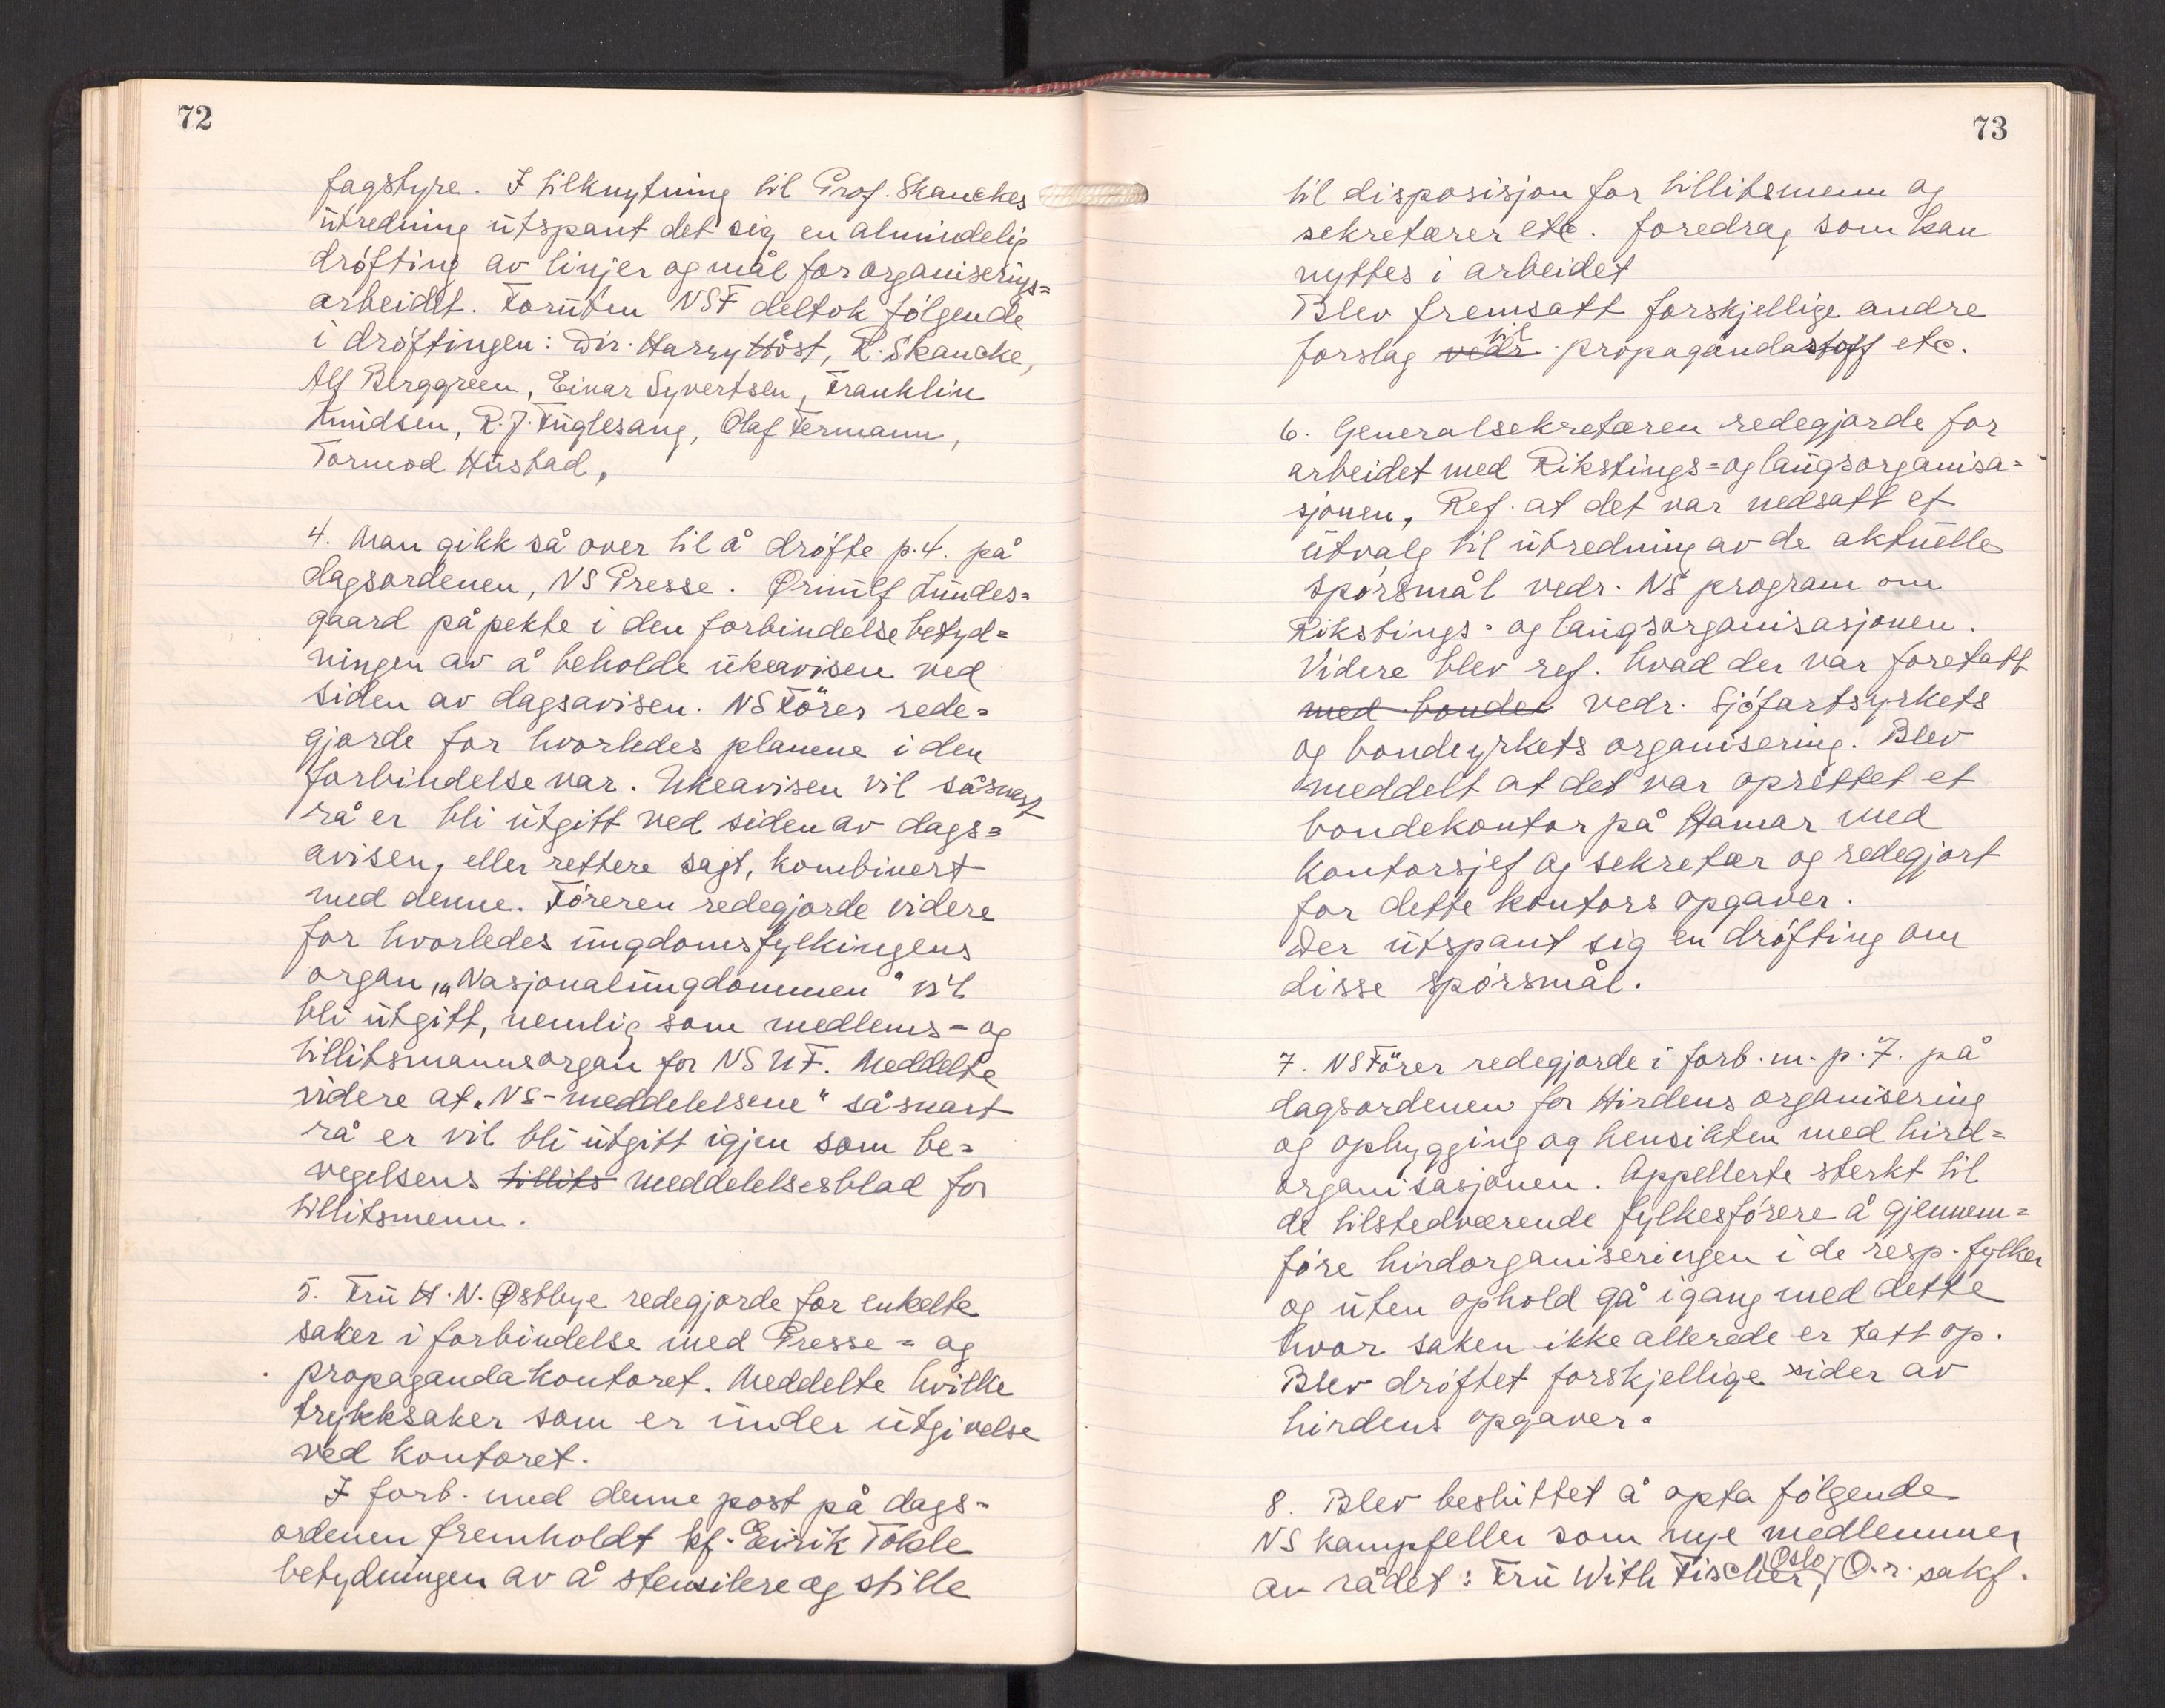 72
fagstyre. I tilknytning til Prof. Skanckes
utredning utspant det sig en almindelig
drøfting av linjer og mål for organiserings=
arbeidet. Foruten NSF deltok følgende
i drøftingen: Dir. Harry Høst, R. Skancke,
Alf Berggreen, Einar Syvertsen, Franklin
Knudsen, R. J. Fuglesang, Olaf Fermann,
Tormod Hustad,
4. Man gikk så over til å drøfte p. 4. på
dagsordenen, NS Presse. Ørnulf Lundes=
gaard påpekte i den forbindelse betyd=
ningen av å beholde ukeavisen ved
siden av dagsavisen. NS Fører rede=
gjorde for hvorledes planene i den
forbindelse var. Ukeavisen vil såsnart
rå er bli utgitt ved siden av dags=
avisen, eller rettere sagt, kombinert
med denne. Føreren redegjorde videre
for hvorledes ungdomsfylkingens
organ „Nasjonalungdommen" vil
bli utgitt, nemlig som medlems= og
tillitsmannsorgan for NSUF. Meddelte
videre at „NS-meddelelsene" såsnart
rå er vil bli utgitt igjen som be=
vegelsens tillits meddelelsesblad for
tillitsmenn.
5. Fru H. N. Østbye redegjorde for enkelte
saker i forbindelse med Presse= og
propagandakontoret. Meddelte hvilke
trykksaker som er under utgivelse
ved kontoret.
I forb. med denne post på dags=
ordenen fremholdt kf. Eirik Tolde
betydningen av å stensilere og stille
73
til disposisjon for tillitsmenn og
sekretærer etc. foredrag som kan
nyttes i arbeidet
Blev fremsatt forskjellige andre
forslag vedr. til propagandastoff etc.
6. Generalsekretæren redegjorde for
arbeidet med Rikstings= og laugsorganisa=
sjonen, Ref. at det var nedsatt et
utvalg til utredning av de aktuelle
spørsmål vedr. NS program om
Rikstings= og laugsorganisasjonen.
Videre blev ref. hvad der var foretatt
med bonde vedr. Sjøfartsyrkets
og bondeyrkets organisering. Blev
meddelt at det var oprettet et
bondekontor på Hamar med
kontorsjef og sekretær og redegjort
for dette kontors opgaver.
Der utspant sig en drøfting om
disse spørsmål.
7. NS Fører redegjorde i forb. m. p. 7. på
dagsordenen for Hirdens organisering
og opbygging og hensikten med hird=
organisasjonen. Appellerte sterkt til
de tilstedværende fylkesførere å gjennem=
føre hirdorganiseringen i de resp. fylker
og uten ophold gå igang med dette
hvor saken ikke allerede er tatt op.
Blev drøftet forskjellige sider av
hirdens opgaver.
8. Blev besluttet å opta følgende
NS kampfeller som nye medlemmer
av rådet: Fru With Fischer, Oslo, O.r. sakf.